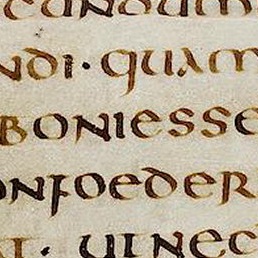 cundum
ndi · quam
boniesse
onfoeder
at · utnec